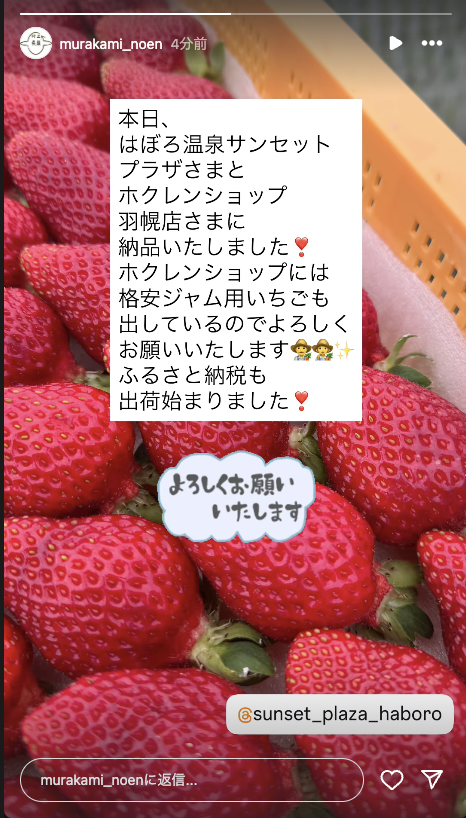 murakami_noen 4分前
本日、
はぼろ温泉サンセット
プラザさまと
ホクレンショップ
羽幌店さまに
納品いたしました❣️
ホクレンショップには
格安ジャム用いちごも
出しているのでよろしく
お願いいたします👩‍🌾👩‍🌾✨
ふるさと納税も
出荷始まりました❣️
よろしくお願い
いたします
@sunset_plaza_haboro
murakami_noenに返信...